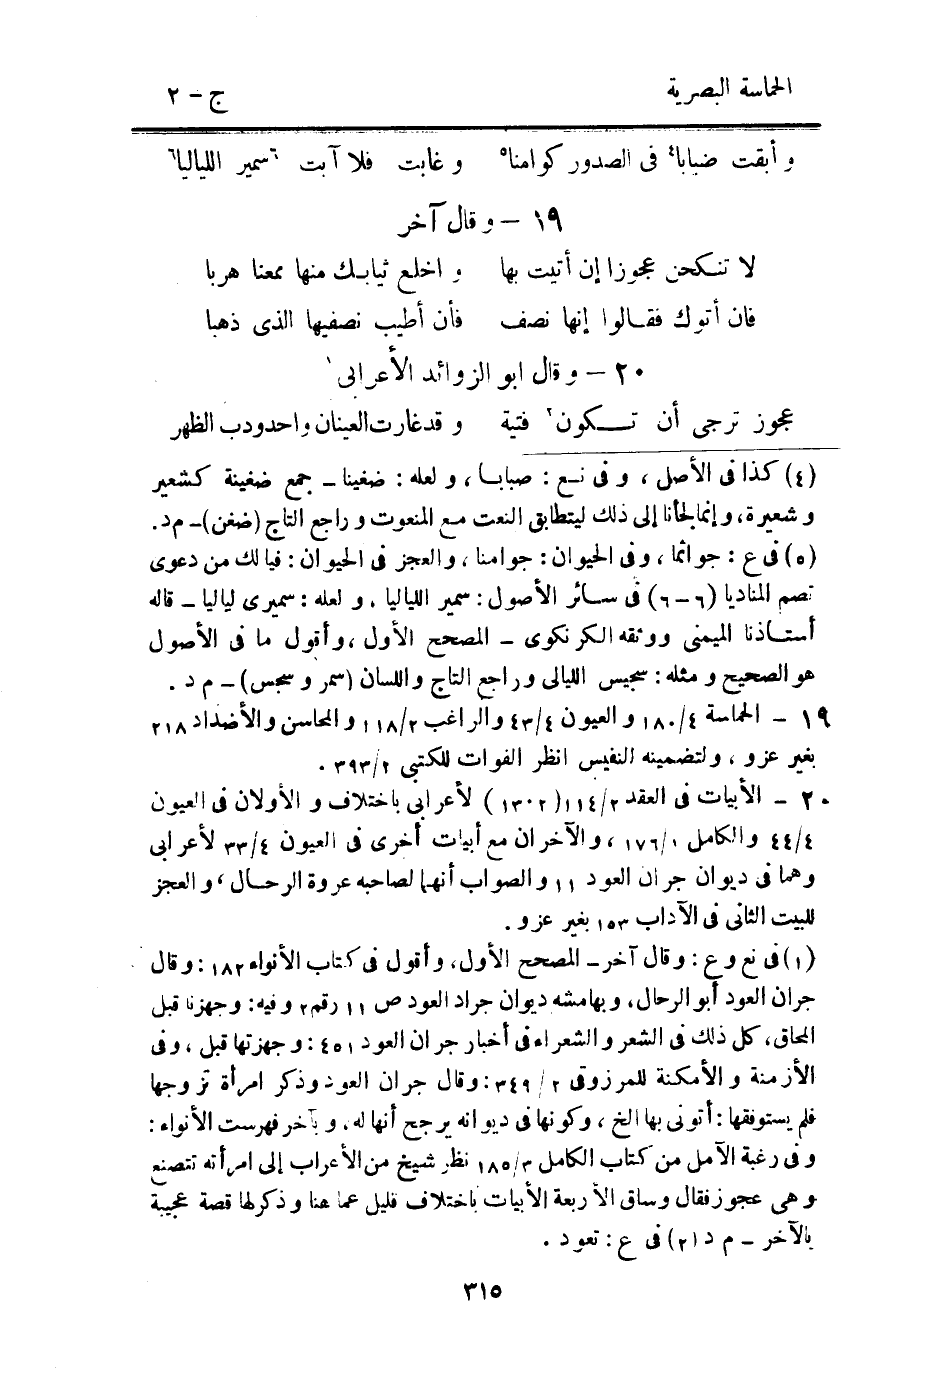 الحماسة البصرية ج – ٢
و أبقت ضبابا٤ فى الصدور كوامنا٥ و غابت فلا آبت ٦سمير اللياليا٦
١٩ – و قال آخر
لا تنكحن عجوزا إن أتيت بها و اخلع ثيابك منها ممعنا هربا
فان أتوك فقالوا إنها نصف فأن أطيب نصفيها الذى ذهبا
٢٠ – و قال ابو الزوائد الأعرابى١
عجوز ترجى أن تكون٢ فتية و قد غارت العينان و احدودب الظهر
(٤) كذا فى الأصل ، و فى نع : صبابا ، و لعله : ضغينا – جمع ضغينة كشعير
و شعيرة، و إنما لجأنا إلى ذلك ليتطابق النعت مع المنعوت و راجع التاج (ضغن) – م د.
(٥) فى ع : جواثما ، وفى الحيوان : جوامنا ، والعجز فى الحيوان : فيا لك من دعوى
تصم المناديا (٦–٦) فى سائر الأصول : سمير اللياليا ، و لعله : سميرى لياليا – قاله
أستاذنا الميمنى ووثقه الكرنكوى – المصحح الأول ، وأقول ما فى الأصول
هو الصحيح و مثله : سجيس الليالى و راجع التاج واللسان (سمر و سجس) – م د .
١٩ – الحماسة ٤/١٨٠ و العيون ٤/٤٣ والراغب ٢/١١٨ و المحاسن والأضداد ٢١٨
بغير عزو ، ولتضمينه النفيس انظر الفوات للكتبى ٢/٣٩٣ .
٢٠ – الأبيات فى العقد ٢/١١٤ (١٣٠٢) لأعرابى باختلاف و الأولان فى العيون
٤/٤٤ والكامل ١/١٧٦ ، والآخران مع أبيات أخرى فى العيون ٤/٣٣ لأعرابى
وهما فى ديوان جران العود ١١ و الصواب أنهما لصاحبه عروة الرحال ، و العجز
للبيت الثانى فى الآداب ١٥٣ بغير عزو .
(١) فى نع و ع : وقال آخر – المصحح الأول، وأقول فى كتاب الأنواء ١٨٢ : وقال
جران العود أبو الرحال، وبهامشه ديوان جراد العود ص ١١ رقم ٢ وفيه: وجهزنا قبل
المحاق، كل ذلك فى الشعر و الشعراء فى أخبار جران العود ٤٥١ : وجهزتها قبل ، وفى
الأزمنة و الأمكنة للمرزوقى ٢/٣٤٩ : وقال جران العود وذكر امرأة تزوجها
فلم يستوفقها : أتونى بها الخ ، وكونها فى ديوانه يرجح أنها له، و بآخر فهرست الأنواء :
و فى رغبة الآمل من كتاب الكامل ٣/١٨٥ نظر شيخ من الأعراب إلى امرأته تتصنع
وهى عجوز فقال وساق الأربعة الأبيات باختلاف قليل عما هنا وذكر لها قصة عجيبة
بالآخر – م د (٢) فى ع : تعود .
٣١٥